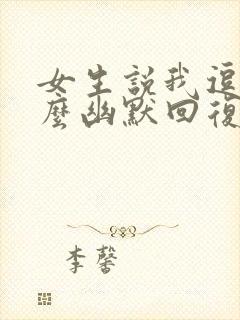 女生說我逗
麼幽默回復
李馨